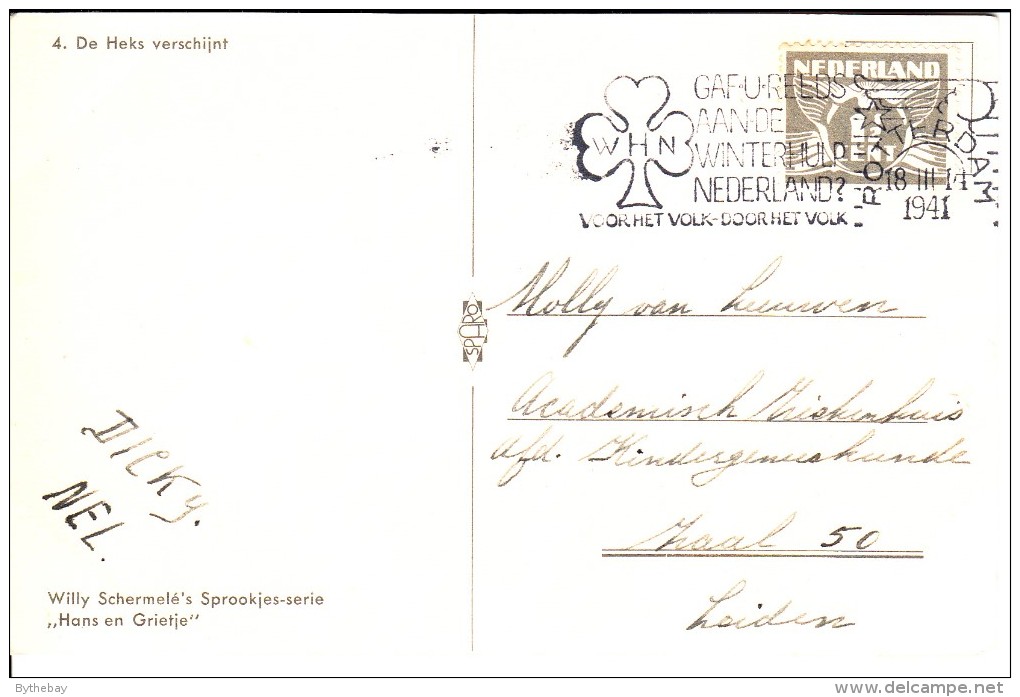 4. De Heks verschijnt
NEDERLAND
1½
CENT
GAF·U·REEDS
AAN·DE
WINTERHULP
NEDERLAND?
VOOR HET VOLK-DOOR HET VOLK
W H N
ROTTERDAM
18 III 14
1941
SPARO
Molly van Leeuwen
Academisch Ziekenhuis
afd. Kindergeneeskunde
Zaal 50
Leiden
DICKY.
NEL.
Willy Schermelé's Sprookjes-serie
„Hans en Grietje"
Bythebay
www.delcampe.net